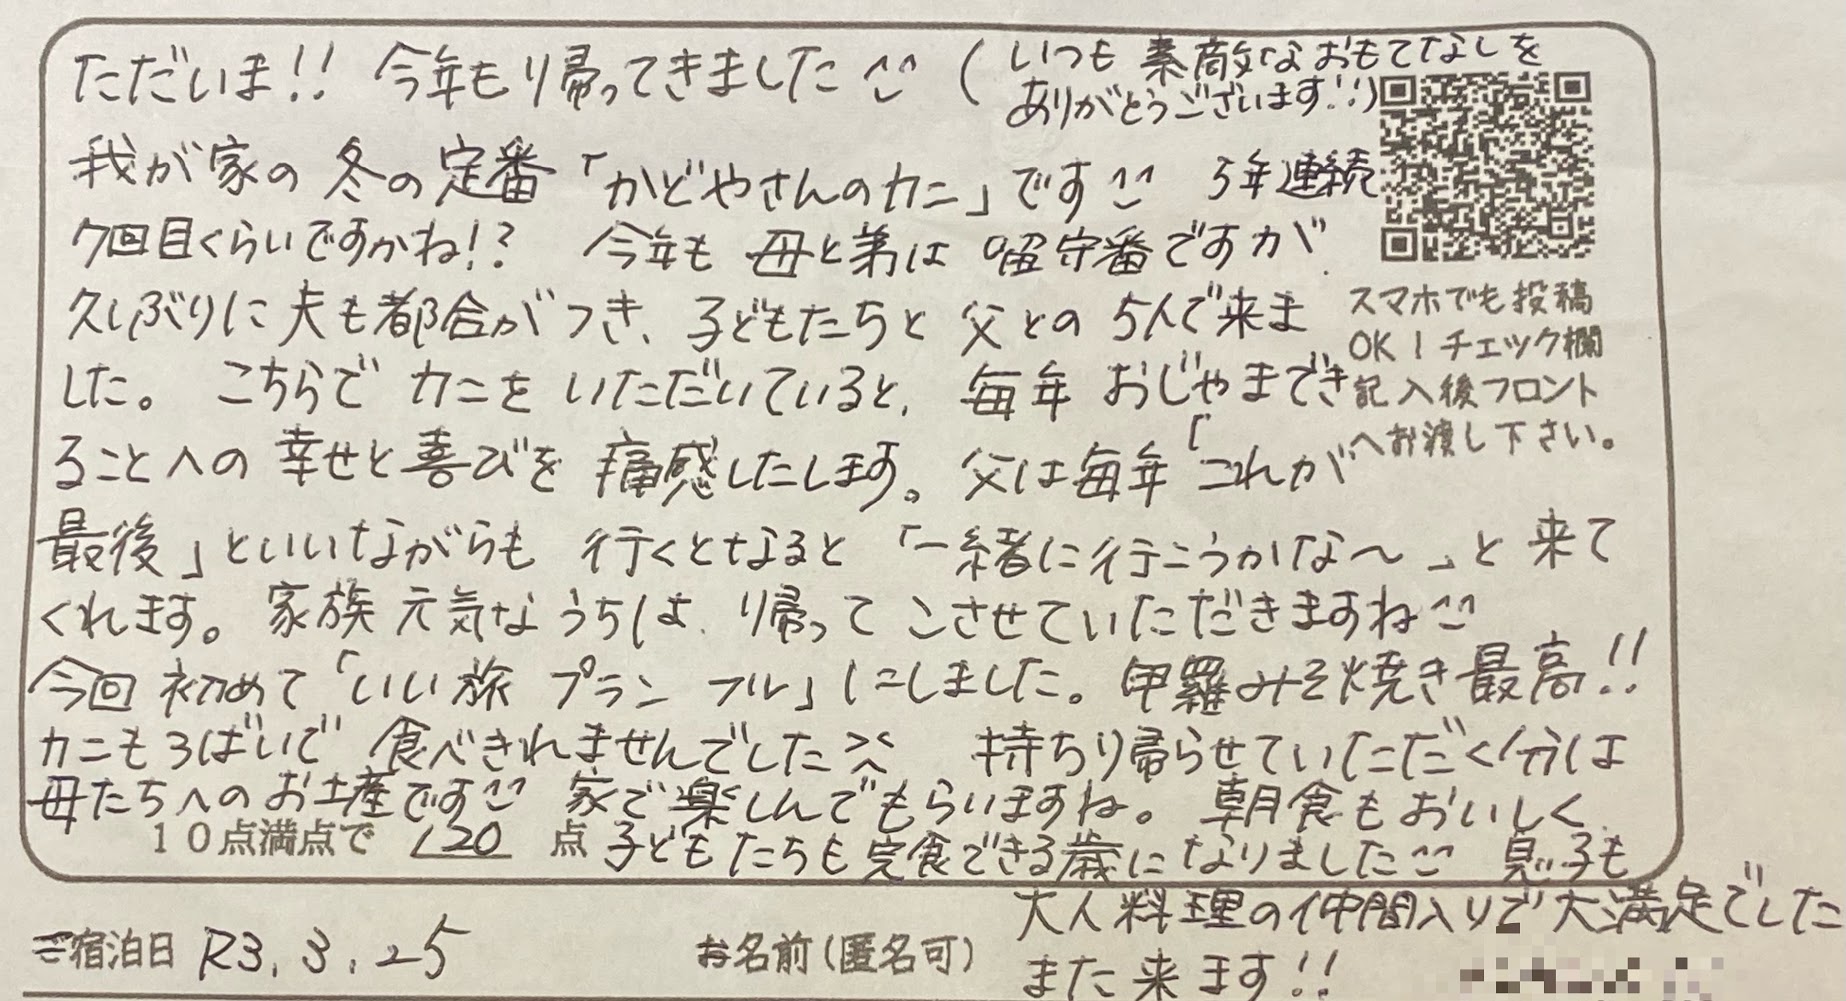 ただいま!! 今年もり帰ってきました^^ (いつも素敵なおもてなしを
ありがとうございます!!)
我が家の冬の定番「かどやさんのカニ」です^^ 5年連続
7回目くらいですかね!? 今年も母と弟は留守番ですが、
久しぶりに夫も都合がつき、子どもたちと父との5人で来ま
した。こちらでカニをいただいていると、毎年おじゃまでき
ることへの幸せと喜びを痛感したします。父は毎年「これが
最後」といいながらも行くとなると「一緒に行こうかな〜」と来て
くれます。家族元気なうちは、り帰ってこさせていただきますね^^
今回初めて「いい旅プランフル」にしました。甲羅みそ焼き最高!!
カニも3ばいで食べきれませんでした>< 持ちり帰らせていただく分は
母たちへのお土産です^^ 家で楽しんでもらいますね。朝食もおいしく、
10点満点で 120 点 子どもたちも完食できる歳になりました^^ 息子も
大人料理の仲間入りで大満足でした
また来ます!!
スマホでも投稿
OK!チェック欄
記入後フロント
へお渡し下さい。
ご宿泊日 R3.3.25 お名前(匿名可)